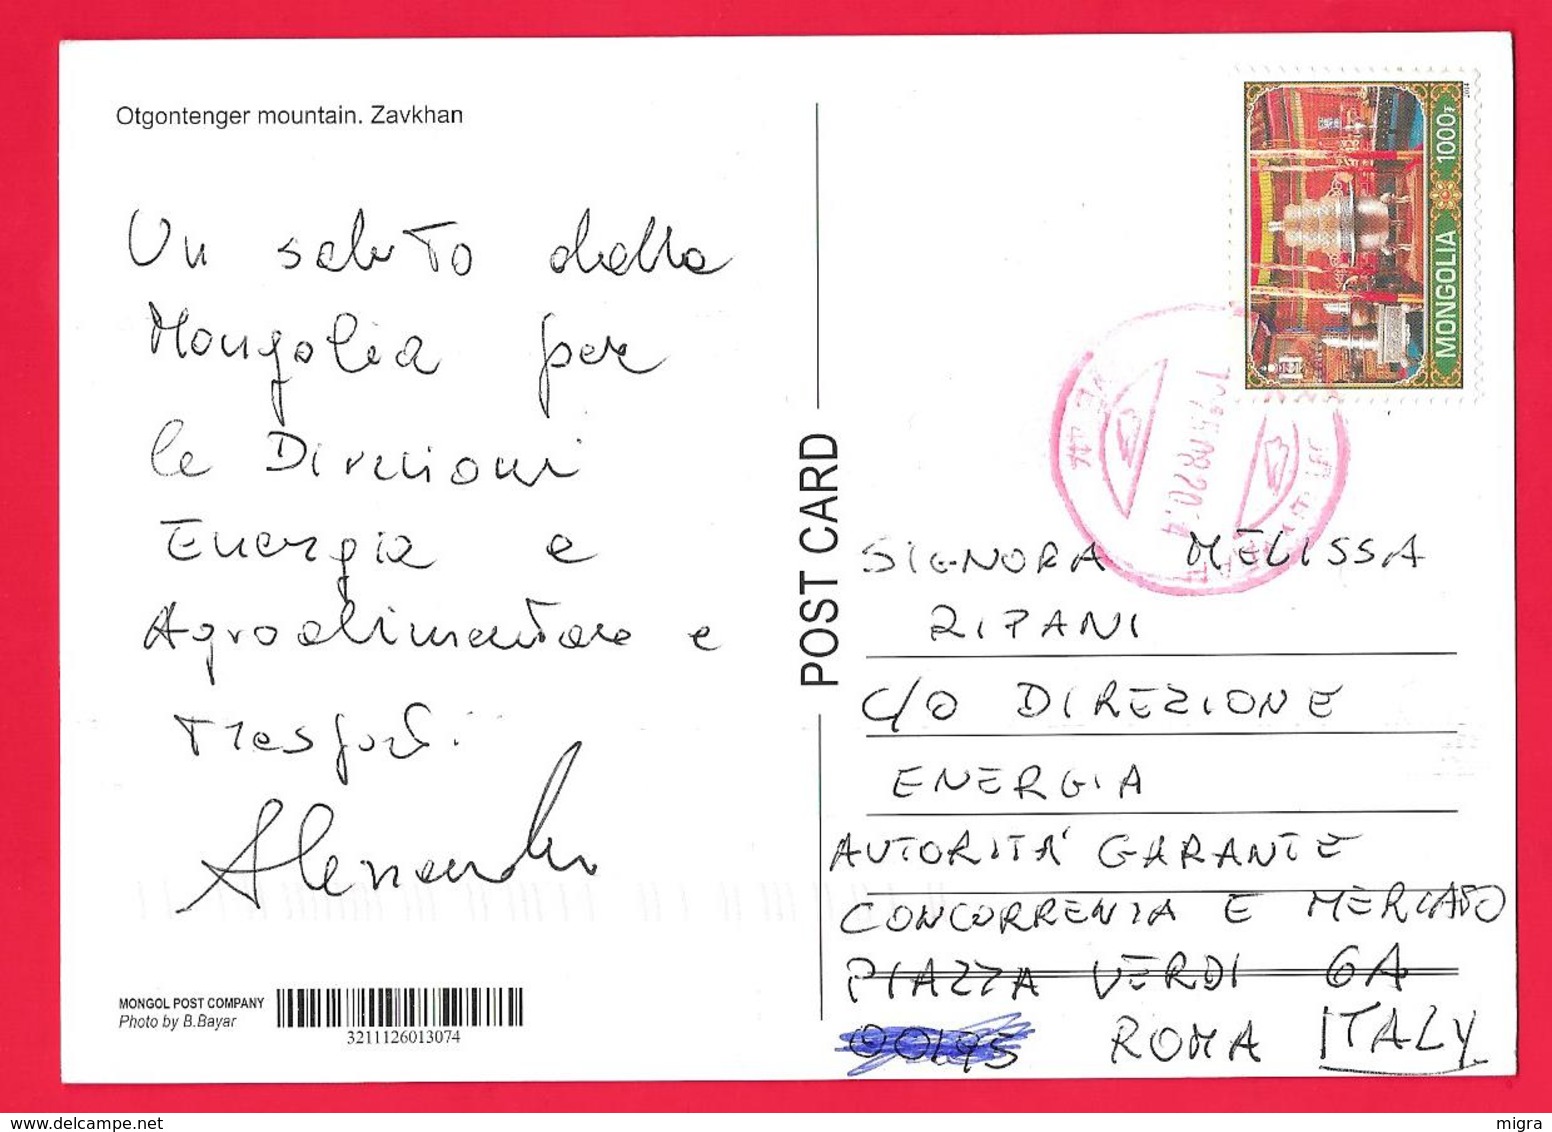 Otgontenger mountain. Zavkhan
Un saluto dalla
Mongolia per
le Direzioni
Energia e
Agroalimentare e
Trasporti.
Alessandro
MONGOL POST COMPANY
Photo by B.Bayar
3211126013074
POST CARD
MONGOLIA 1000₮
2014
SIGNORA MELISSA
RIPANI
C/O DIREZIONE
ENERGIA
AUTORITA' GARANTE
CONCORRENZA E MERCATO
PIAZZA VERDI 6A
00195 ROMA ITALY
www.delcampe.net
migra